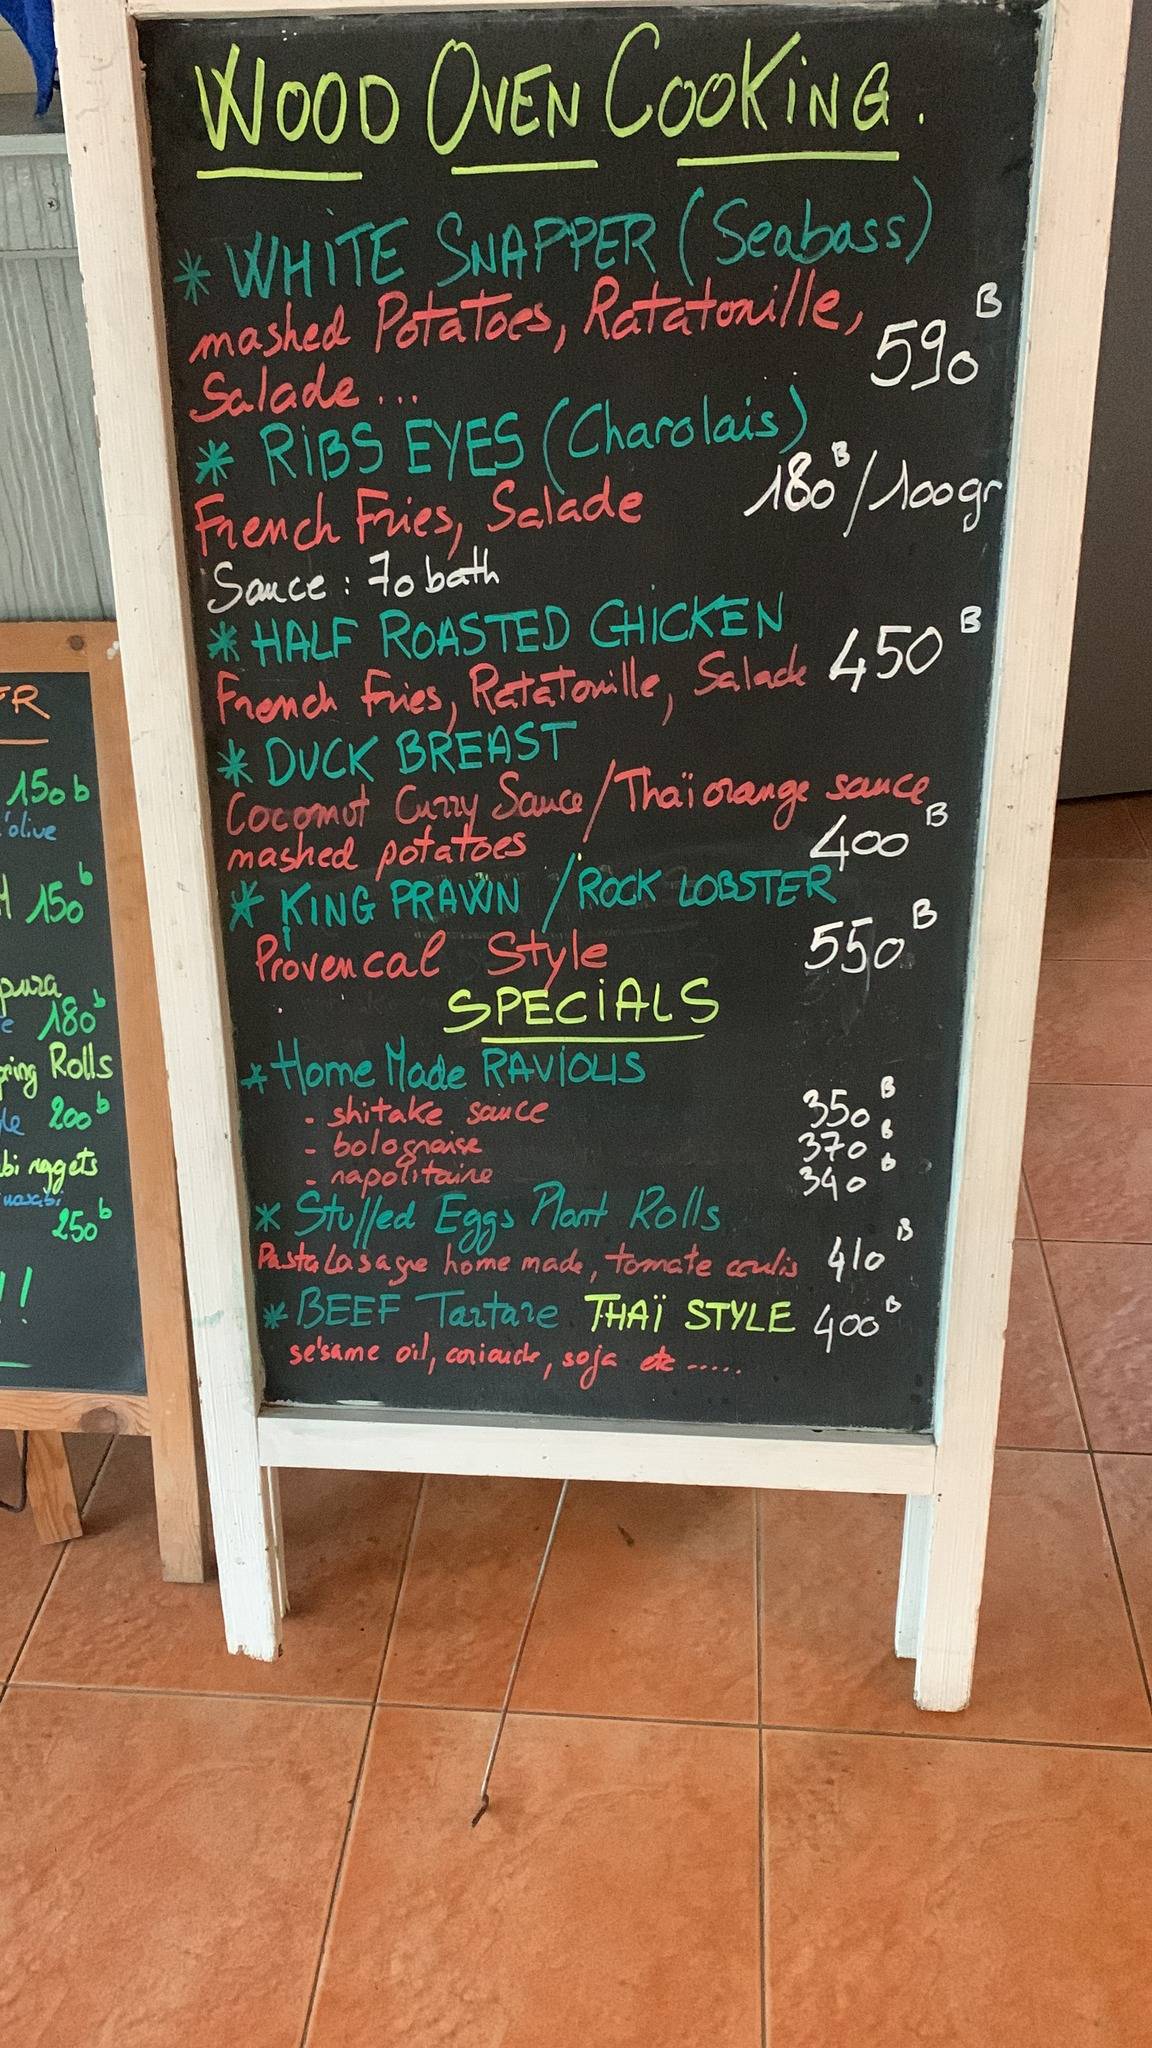 WOOD OVEN COOKING.
* WHITE SNAPPER (Seabass)
mashed Potatoes, Ratatouille,
Salade ... 590 B
* RIBS EYES (Charolais)
French Fries, Salade 180 B / 100gr
Sauce : 70 bath
* HALF ROASTED CHICKEN
French Fries, Ratatouille, Salade 450 B
* DUCK BREAST
Coconut Curry Sauce / Thaï orange sauce
mashed potatoes 400 B
* KING PRAWN / ROCK LOBSTER
Provencal Style 550 B
SPECIALS
* Home Made RAVIOLIS
- shitake sauce 350 B
- bolognaise 370 B
- napolitaine 340 B
* Stuffed Eggs Plant Rolls
Pasta Lasagne home made, tomate coulis 410 B
* BEEF Tartare THAÏ STYLE 400 B
sésame oil, coriande, soja etc ......
150 b
l'olive
150 b
180 b
Rolls
200 b
nuggets
250 b
!!